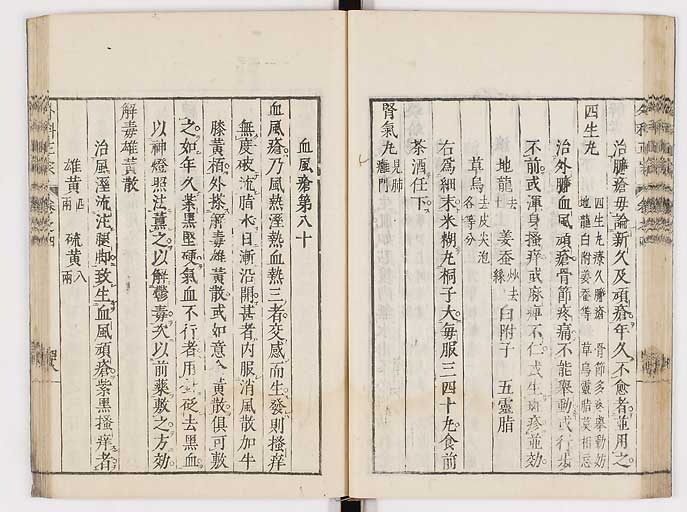 治臁瘡毋論新久及頑瘡年久不愈者並用之
四生丸
四生丸療久臁瘡 骨節多疼舉動妨
地龍白附姜蚕等 草烏靈脂莫相忘
治外臁血風頑瘡骨節疼痛不能舉動或行步
不前或渾身搔痒或麻痺不仁或生瘡並効
地龍去土 姜蚕炒去絲 白附子 五靈脂
草烏去皮尖泡各等分
右為細末米糊丸桐子大每服三四十丸食前
茶酒任下
腎氣丸見肺癰門
血風瘡第八十
血風瘡乃風熱溼熱血熱三者交感而生發則搔痒
無度破流脂水日漸沿開甚者内服消風散加牛
膝黄栢外搽解毒雄黄散或如意黄散俱可敷
之如年久紫黒堅硬氣血不行者用砭去黒血
以神燈照法薫之以解鬱毒次以前藥敷之方効
解毒雄黄散
治風溼流注腿脚致生血風頑瘡紫黒搔痒者
雄黄四兩 硫黄八兩
外科正宗 卷之四